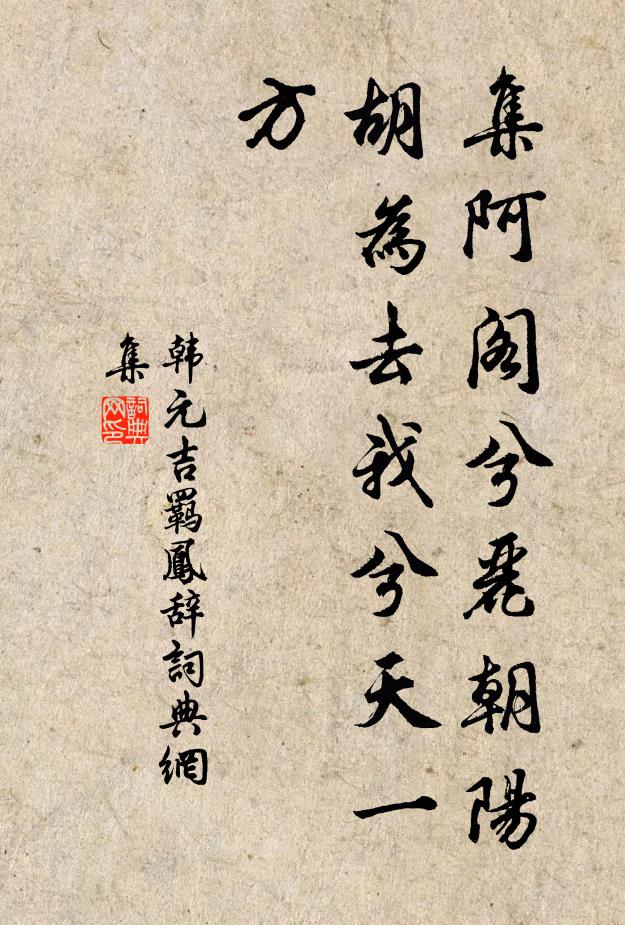 集阿阁兮丽朝陽
胡為去我兮天一
方
韩元吉羁鳳辞詞典網
集
詞典
网印